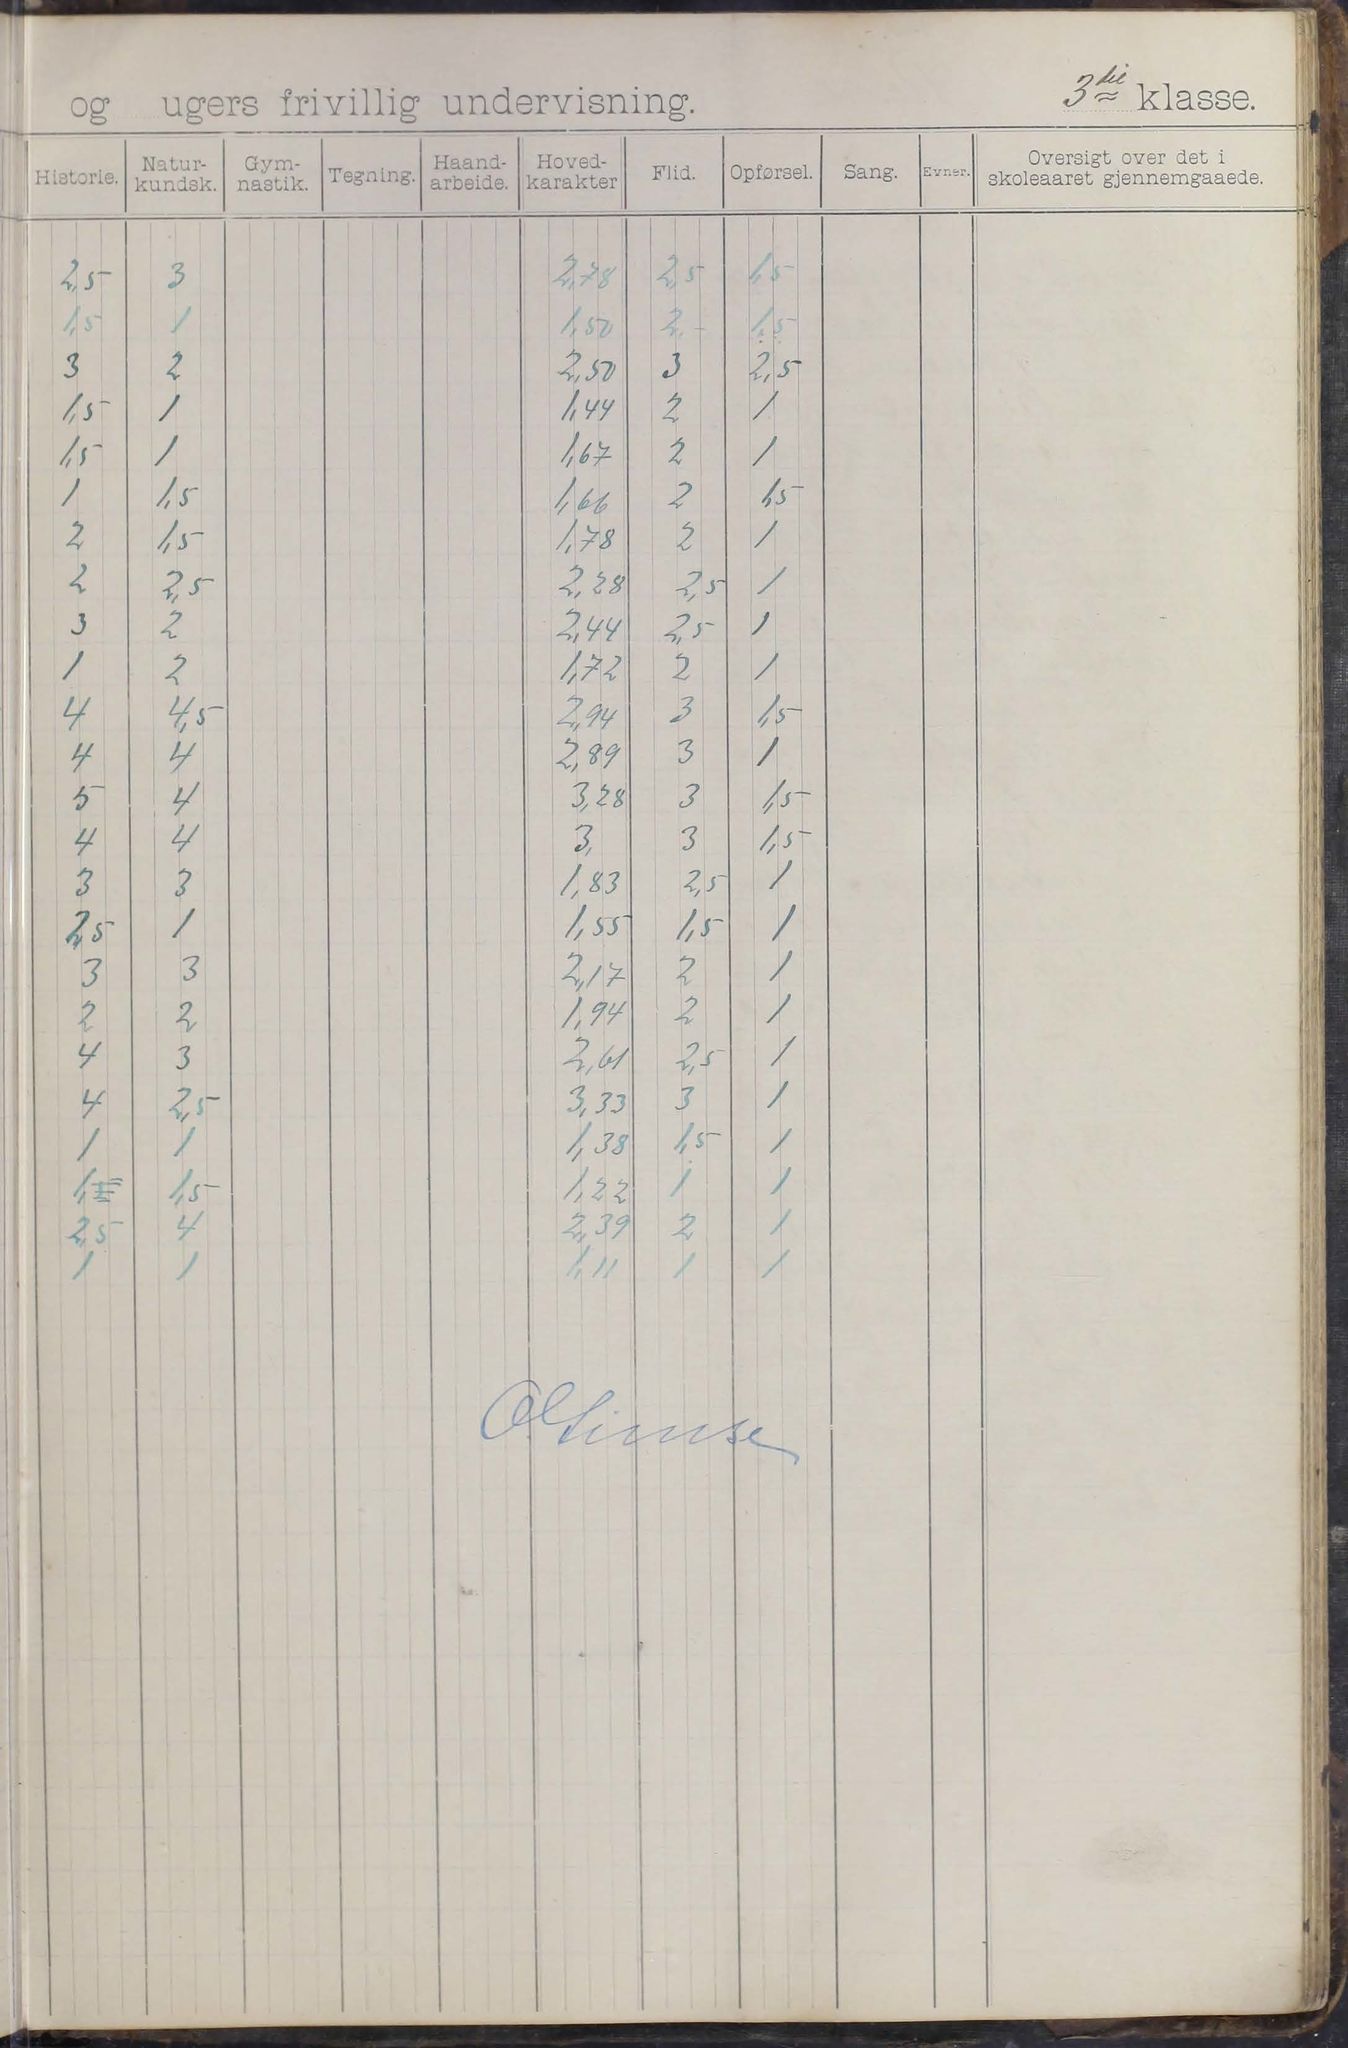 og ugers frivillig undervisning. 3die klasse.
Historie. Natur-kundsk. Gym-nastik. Tegning. Haand-arbeide. Hoved-karakter Flid. Opførsel. Sang. Evner. Oversigt over det i skoleaaret gjennemgaaede.
2,5 3 2,78 2,5 1,5
1,5 1 1,50 2,- 1,5
3 2 2,50 3 2,5
1,5 1 1,44 2 1
1,5 1 1,67 2 1
1 1,5 1,66 2 1,5
2 1,5 1,78 2 1
2 2,5 2,28 2,5 1
3 2 2,44 2,5 1
1 2 1,72 2 1
4 4,5 2,94 3 1,5
4 4 2,89 3 1
5 4 3,28 3 1,5
4 4 3, 3 1,5
3 3 1,83 2,5 1
2,5 1 1,55 1,5 1
3 3 2,17 2 1
2 2 1,94 2 1
4 3 2,61 2,5 1
4 2,5 3,33 3 1
1 1 1,38 1,5 1
1, 1,5 1,22 1 1
2,5 4 2,39 2 1
1 1 1,11 1 1